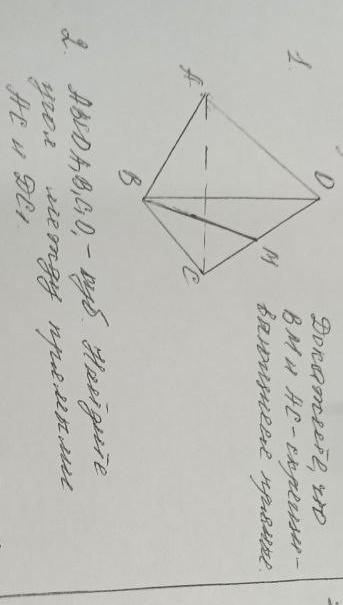 1.
D
A
B
C
M
Докажите, что
BM и AC - скрещи-
вающиеся прямые.
2. ABCDA₁B₁C₁D₁ - куб. Найдите
угол между прямыми
AC и DC₁.